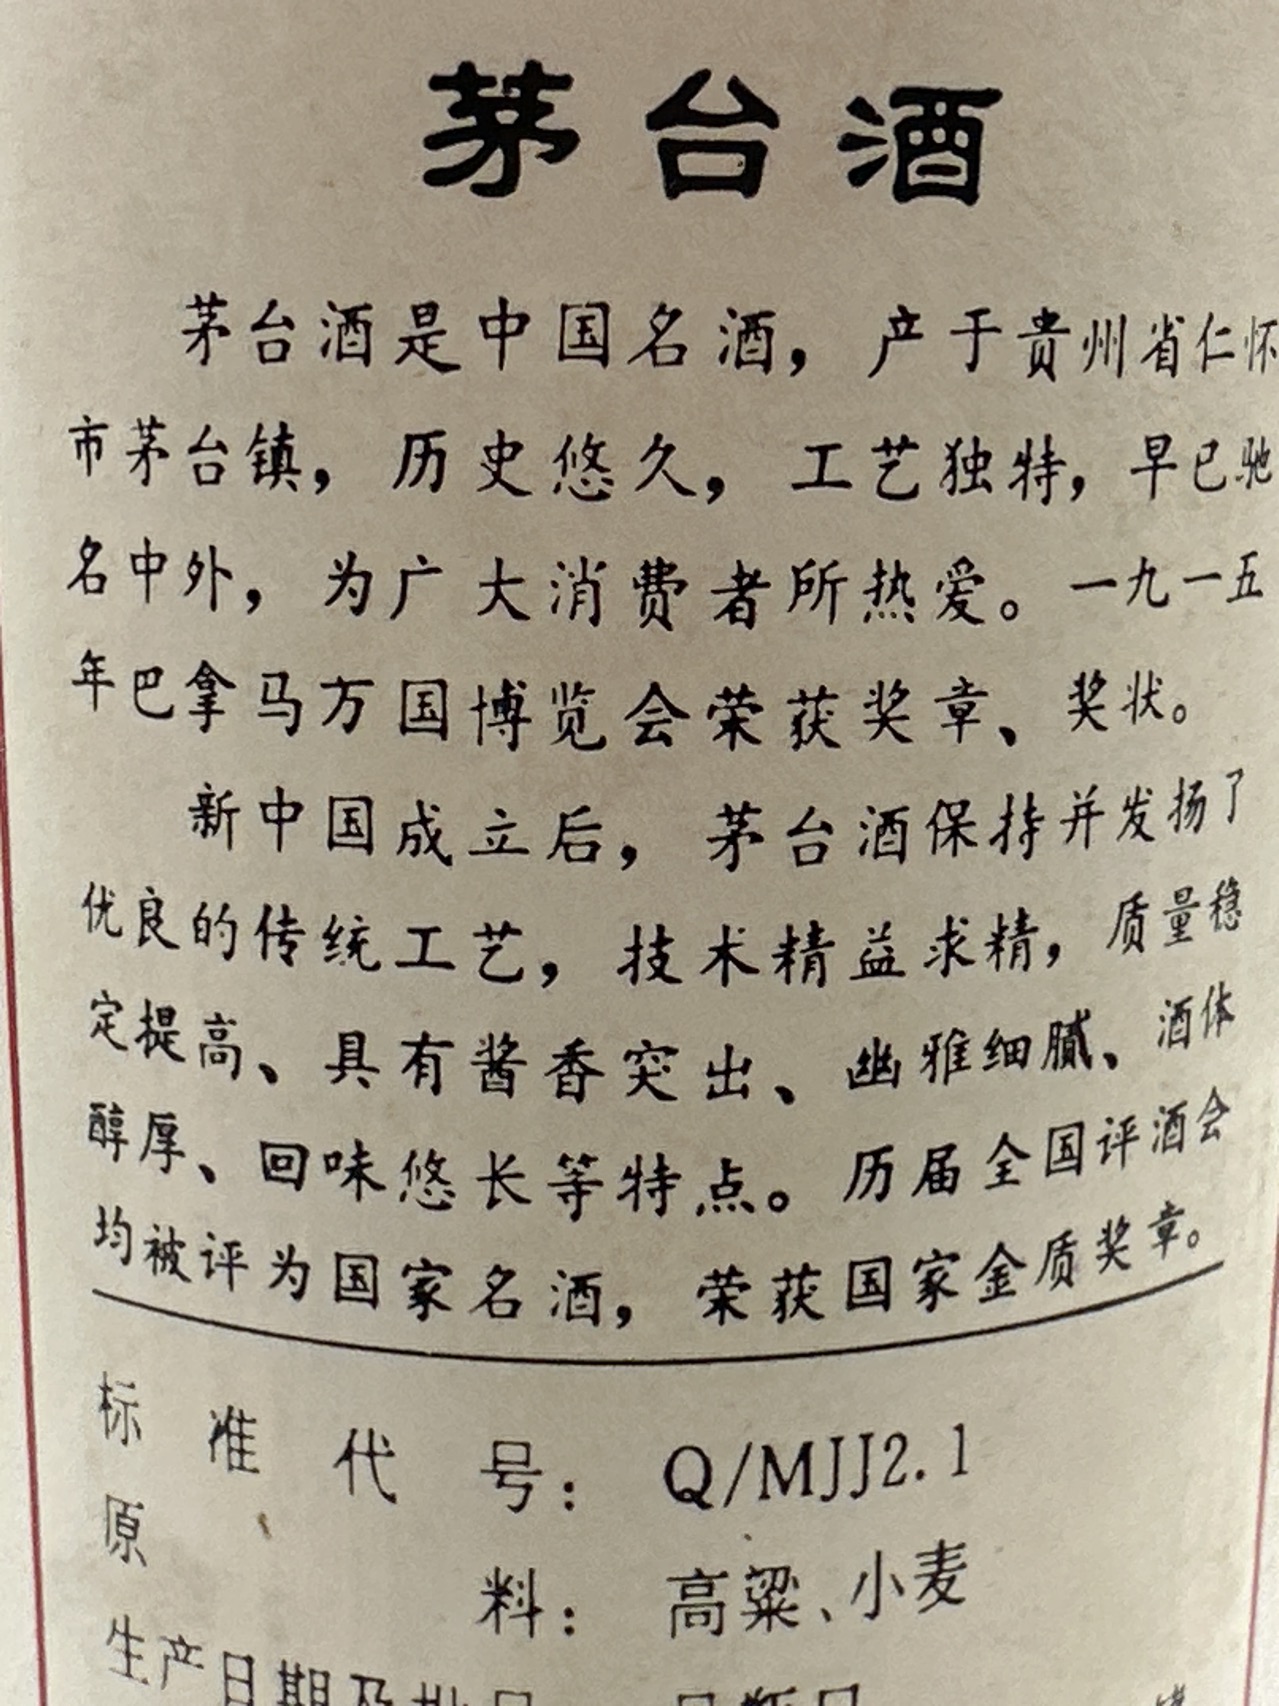 茅台酒
茅台酒是中国名酒，产于贵州省仁怀
市茅台镇，历史悠久，工艺独特，早已驰
名中外，为广大消费者所热爱。一九一五
年巴拿马万国博览会荣获奖章、奖状。
新中国成立后，茅台酒保持并发扬了
优良的传统工艺，技术精益求精，质量稳
定提高、具有酱香突出、幽雅细腻、酒体
醇厚、回味悠长等特点。历届全国评酒会
均被评为国家名酒，荣获国家金质奖章。
标准代号：Q/MJJ2.1
原料：高粱、小麦
生产日期及批号